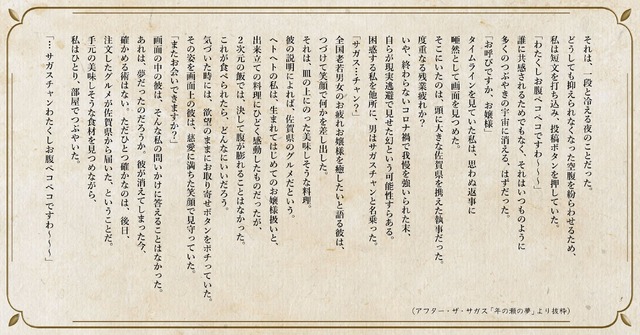 それは、一段と冷える夜のことだった。
どうしても抑えられなくなった空腹を紛らわせるため、
私は短文を打ち込み、投稿ボタンを押していた。
「わたくしお腹ペコペコですわ〜〜〜」
誰に共感されるためでもなく、それはいつものように
多くのつぶやきの宇宙に消える、はずだった。
「お呼びですか、お嬢様」
タイムラインを見ていた私は、思わぬ返事に
唖然として画面を見つめた。
そこにいたのは、頭に大きな佐賀県を携えた執事だった。
度重なる残業疲れか？
いや、終わらないコロナ禍で我慢を強いられた末、
自らが現実逃避で見せた幻という可能性すらある。
困惑する私を他所に、男はサガスチャンと名乗った。
「サガス…チャン？」
全国老若男女のお疲れお嬢様を癒したいと語る彼は、
つづけて笑顔で何かを差し出した。
それは、皿の上にのった美味しそうな料理。
彼の説明によれば、佐賀県のグルメだという。
ヘトヘトの私は、生まれてはじめてのお嬢様扱いと、
出来立ての料理にひどく感動したものだったが、
２次元の飯では、決して腹が膨れることはなかった。
これが食べられたら、どんなにいいだろう。
気づいた時には、欲望のままにお取り寄せボタンをポチっていた。
その姿を画面上の彼は、慈愛に満ちた笑顔で見守っていた。
「またお会いできますか？」
画面の中の彼は、そんな私の問いかけに答えることはなかった。
あれは、夢だったのだろうか。彼が消えてしまった今、
確かめる術はない。ただひとつ確かなのは、後日、
注文したグルメが佐賀県から届いた、ということだ。
手元の美味しそうな食材を見つめながら、
私はひとり、部屋でつぶやいた。
「…サガスチャンわたくしお腹ペコペコですわ〜〜〜」
（アフター・ザ・サガス「年の瀬の夢」より抜粋）